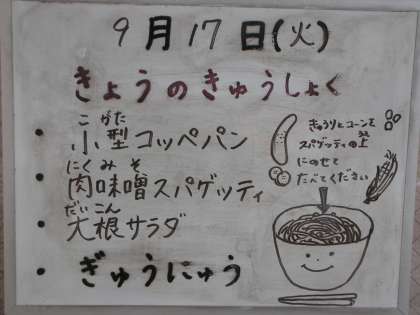 9月17日(火)
きょうのきゅうしょく
こがた
・小型コッペパン
にくみそ
・肉味噌スパゲッティ
だいこん
・大根サラダ
・ぎゅうにゅう
きゅうりとコーンを
スパゲッティの上
にのせて
たべてください